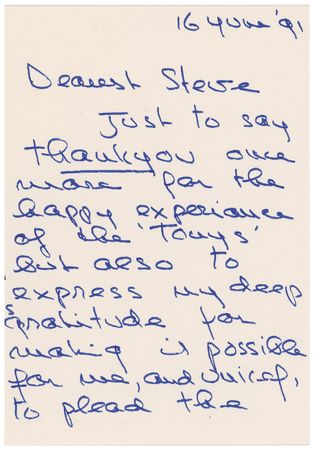 16 June '91
Dearest Steve
Just to say
thankyou once
more for the
happy experience
of the 'Tonys'
but also to
express my deep
gratitude for
making it possible
for me, and Unicef,
to plead the